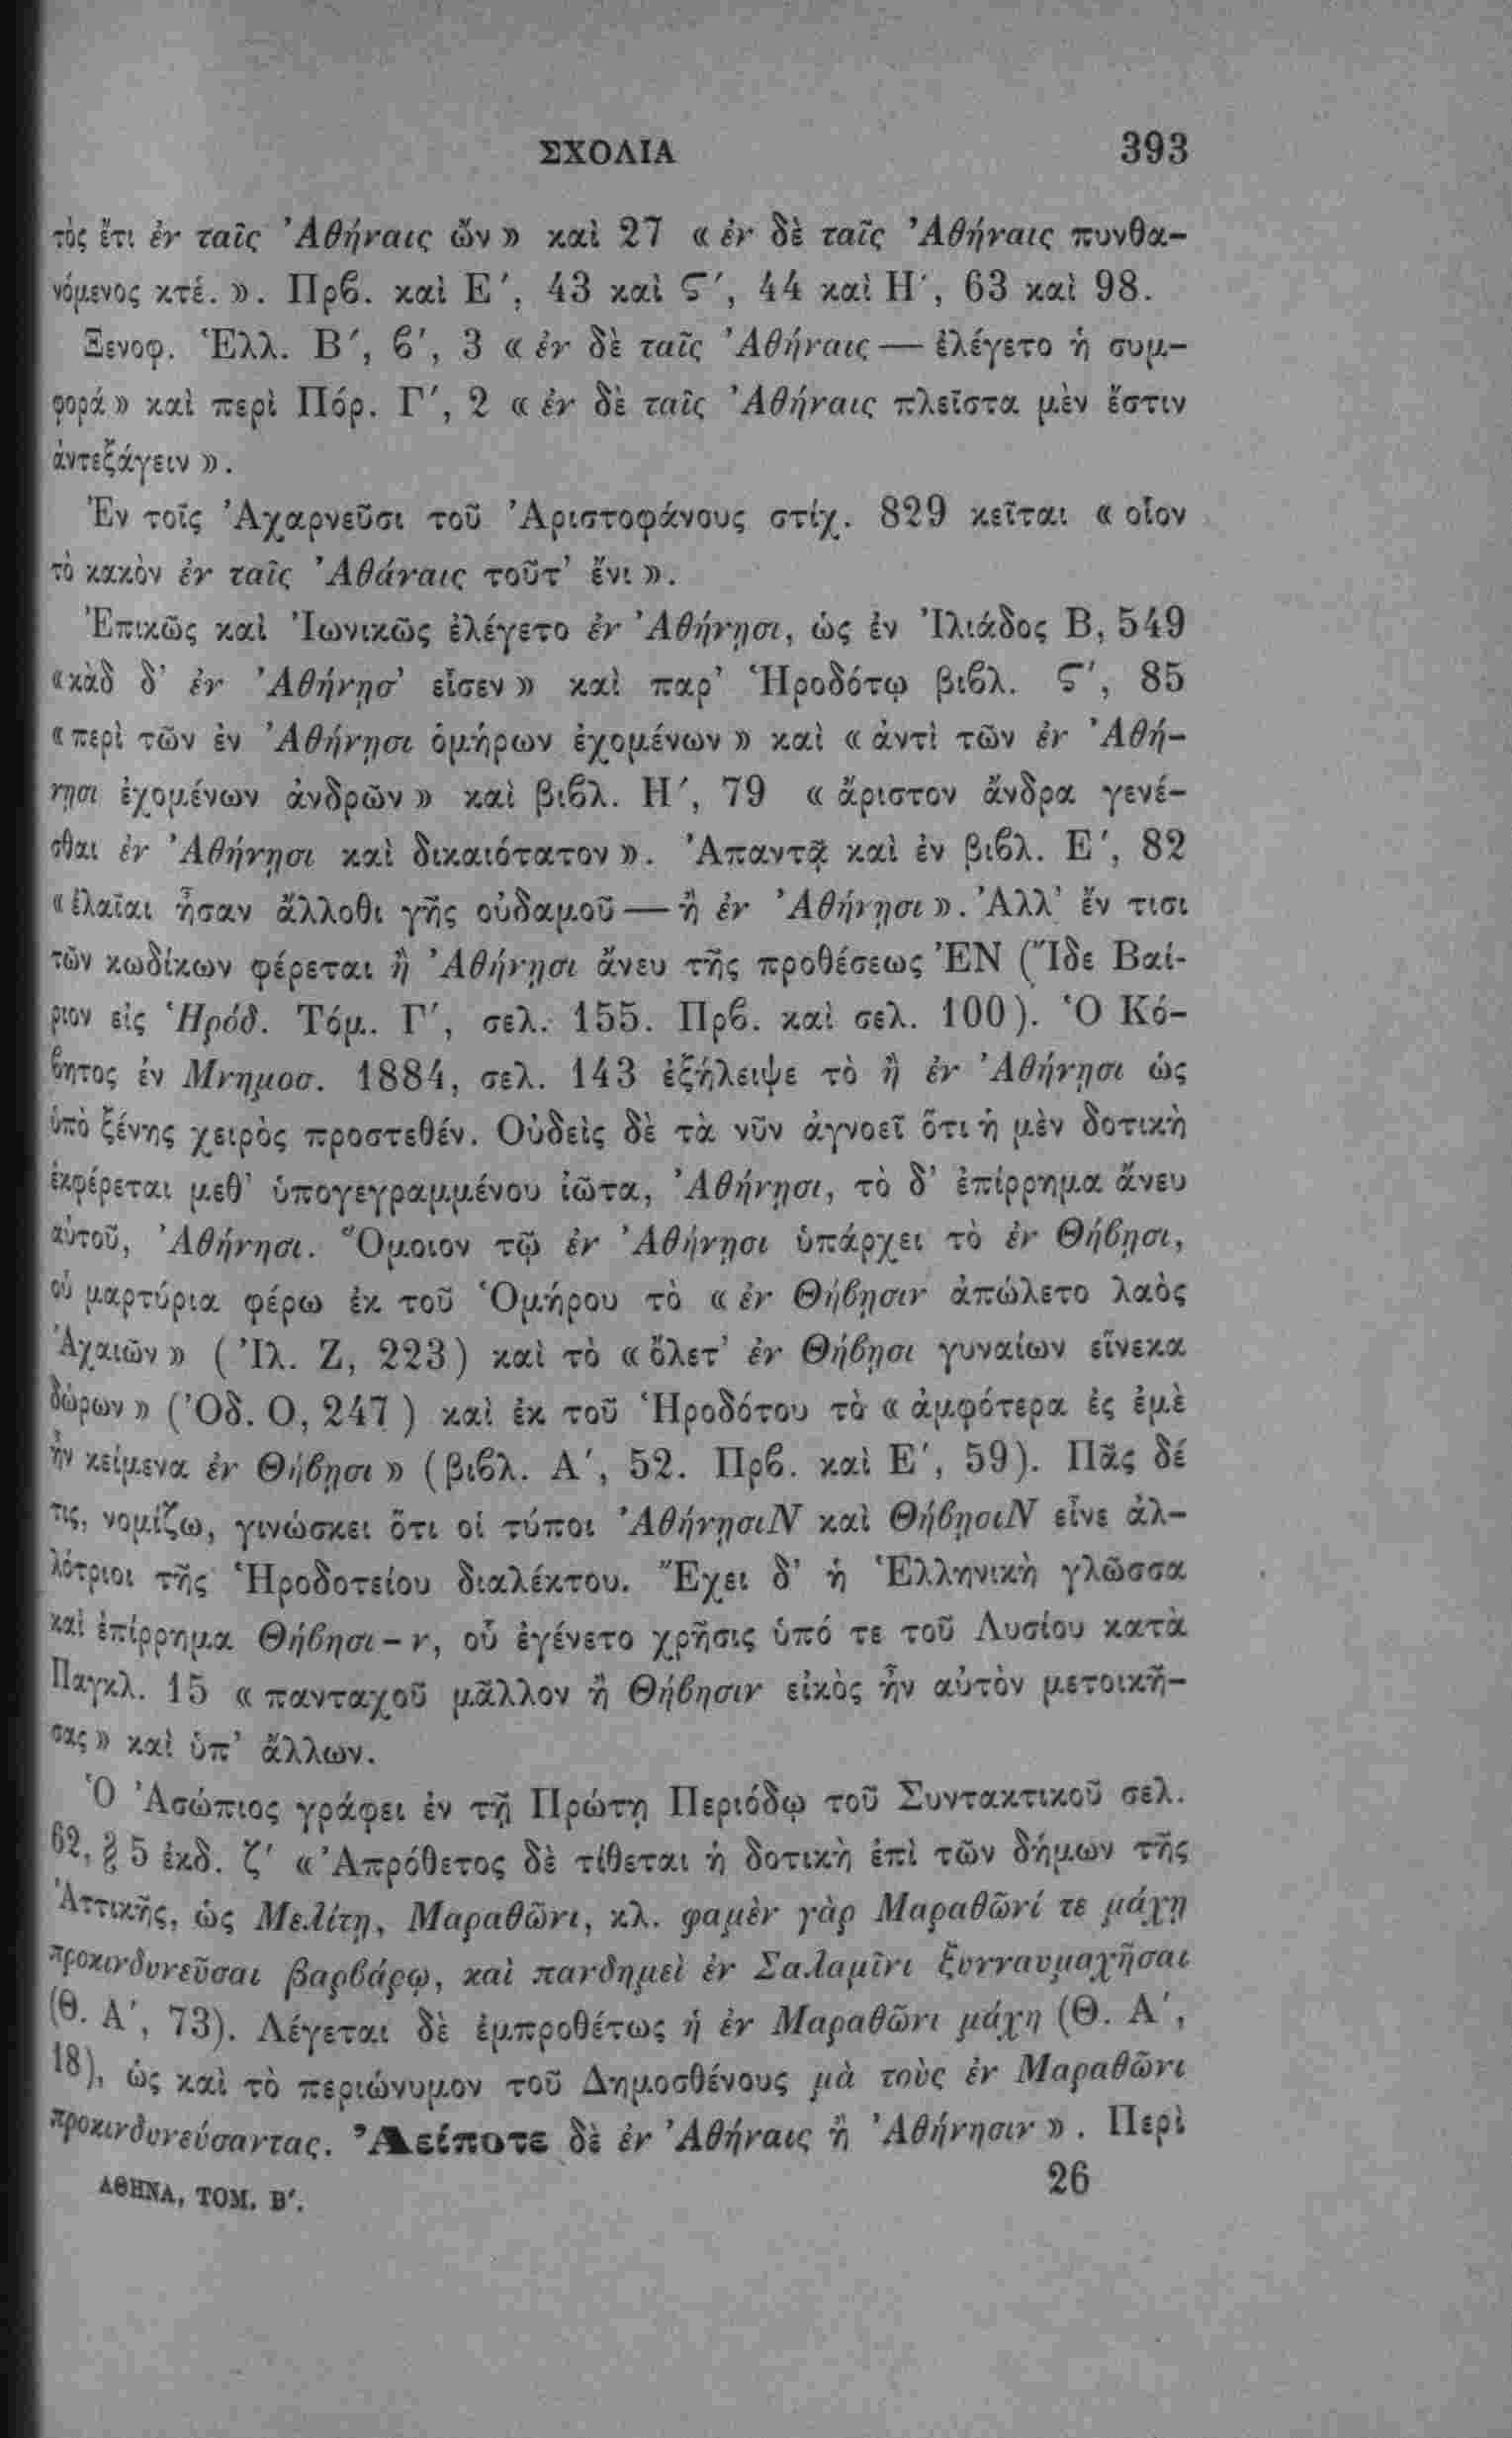 ΣΧΟΛΙΑ 393
τὸς ἔτι ἐν ταῖς Ἀθήναις ὤν» καὶ 27 «ἐν δὲ ταῖς Ἀθήναις πυνθα-
νόμενος κτέ.». Πρβ. καὶ Ε΄, 43 καὶ Ϛ΄, 44 καὶ Η΄, 63 καὶ 98.
Ξενοφ. Ἑλλ. Β΄, β΄, 3 «ἐν δὲ ταῖς Ἀθήναις — ἐλέγετο ἡ συμ-
φορά» καὶ περὶ Πόρ. Γ΄, 2 «ἐν δὲ ταῖς Ἀθήναις πλεῖστα μὲν ἔστιν
ἀντεξάγειν».
Ἐν τοῖς Ἀχαρνεῦσι τοῦ Ἀριστοφάνους στίχ. 829 κεῖται «οἷον
τὸ κακὸν ἐν ταῖς Ἀθάναις τοῦτ’ ἔνι».
Ἐπικῶς καὶ Ἰωνικῶς ἐλέγετο ἐν Ἀθήνῃσι, ὡς ἐν Ἰλιάδος Β, 549
«κὰδ δ’ ἐν Ἀθήνῃσ’ εἷσεν» καὶ παρ’ Ἡροδότῳ βιβλ. Ϛ΄, 85
«περὶ τῶν ἐν Ἀθήνῃσι ὁμήρων ἐχομένων» καὶ «ἀντὶ τῶν ἐν Ἀθή-
νῃσι ἐχομένων ἀνδρῶν» καὶ βιβλ. Η΄, 79 «ἄριστον ἄνδρα γενέ-
σθαι ἐν Ἀθήνῃσι καὶ δικαιότατον». Ἀπαντᾷ καὶ ἐν βιβλ. Ε΄, 82
«ἐλαῖαι ἦσαν ἄλλοθι γῆς οὐδαμοῦ — ἢ ἐν Ἀθήνῃσι». Ἀλλ’ ἔν τισι
τῶν κωδίκων φέρεται ἢ Ἀθήνῃσι ἄνευ τῆς προθέσεως ἘΝ (Ἴδε Βαί-
ριον εἰς Ἡρόδ. Τόμ. Γ΄, σελ. 155. Πρβ. καὶ σελ. 100). Ὁ Κό-
βητος ἐν Μνημοσ. 1884, σελ. 143 ἐξήλειψε τὸ ἢ ἐν Ἀθήνῃσι ὡς
ὑπὸ ξένης χειρὸς προστεθέν. Οὐδεὶς δὲ τὰ νῦν ἀγνοεῖ ὅτι ἡ μὲν δοτικὴ
ἐκφέρεται μεθ’ ὑπογεγραμμένου ἰῶτα, Ἀθήνῃσι, τὸ δ’ ἐπίρρημα ἄνευ
αὐτοῦ, Ἀθήνησι. Ὅμοιον τῷ ἐν Ἀθήνῃσι ὑπάρχει τὸ ἐν Θήβῃσι,
οὗ μαρτύρια φέρω ἐκ τοῦ Ὁμήρου τὸ «ἐν Θήβῃσιν ἀπώλετο λαὸς
Ἀχαιῶν» (Ἰλ. Ζ, 223) καὶ τὸ «ὄλετ’ ἐν Θήβῃσι γυναίων εἵνεκα
δώρων» (Ὀδ. Ο, 247) καὶ ἐκ τοῦ Ἡροδότου τὸ «ἀμφότερα ἐς ἐμὲ
ἦν κείμενα ἐν Θήβῃσι» (βιβλ. Α΄, 52. Πρβ. καὶ Ε΄, 59). Πᾶς δέ
τις, νομίζω, γινώσκει ὅτι οἱ τύποι ἈθήνῃσιΝ καὶ ΘήβῃσιΝ εἶνε ἀλ-
λότριοι τῆς Ἡροδοτείου διαλέκτου. Ἔχει δ’ ἡ Ἑλληνικὴ γλῶσσα
καὶ ἐπίρρημα Θήβησι-ν, οὗ ἐγένετο χρῆσις ὑπό τε τοῦ Λυσίου κατὰ
Παγκλ. 15 «πανταχοῦ μᾶλλον ἢ Θήβησιν εἰκὸς ἦν αὐτὸν μετοικῆ-
σας» καὶ ὑπ’ ἄλλων.
Ὁ Ἀσώπιος γράφει ἐν τῇ Πρώτῃ Περιόδῳ τοῦ Συντακτικοῦ σελ.
62, § 5 ἐκδ. ζ΄ «Ἀπρόθετος δὲ τίθεται ἡ δοτικὴ ἐπὶ τῶν δήμων τῆς
Ἀττικῆς, ὡς Μελίτῃ, Μαραθῶνι, κλ. φαμὲν γὰρ Μαραθῶνί τε μάχῃ
προκινδυνεῦσαι βαρβάρῳ, καὶ πανδημεὶ ἐν Σαλαμῖνι ξυνναυμαχῆσαι
(Θ. Α΄, 73). Λέγεται δὲ ἐμπροθέτως ἡ ἐν Μαραθῶνι μάχη (Θ. Α΄,
18), ὡς καὶ τὸ περιώνυμον τοῦ Δημοσθένους μὰ τοὺς ἐν Μαραθῶνι
προκινδυνεύσαντας. Ἀείποτε δὲ ἐν Ἀθήναις ἢ Ἀθήνησιν». Περὶ
ΑΘΗΝΑ, ΤΟΜ. Β΄. 26